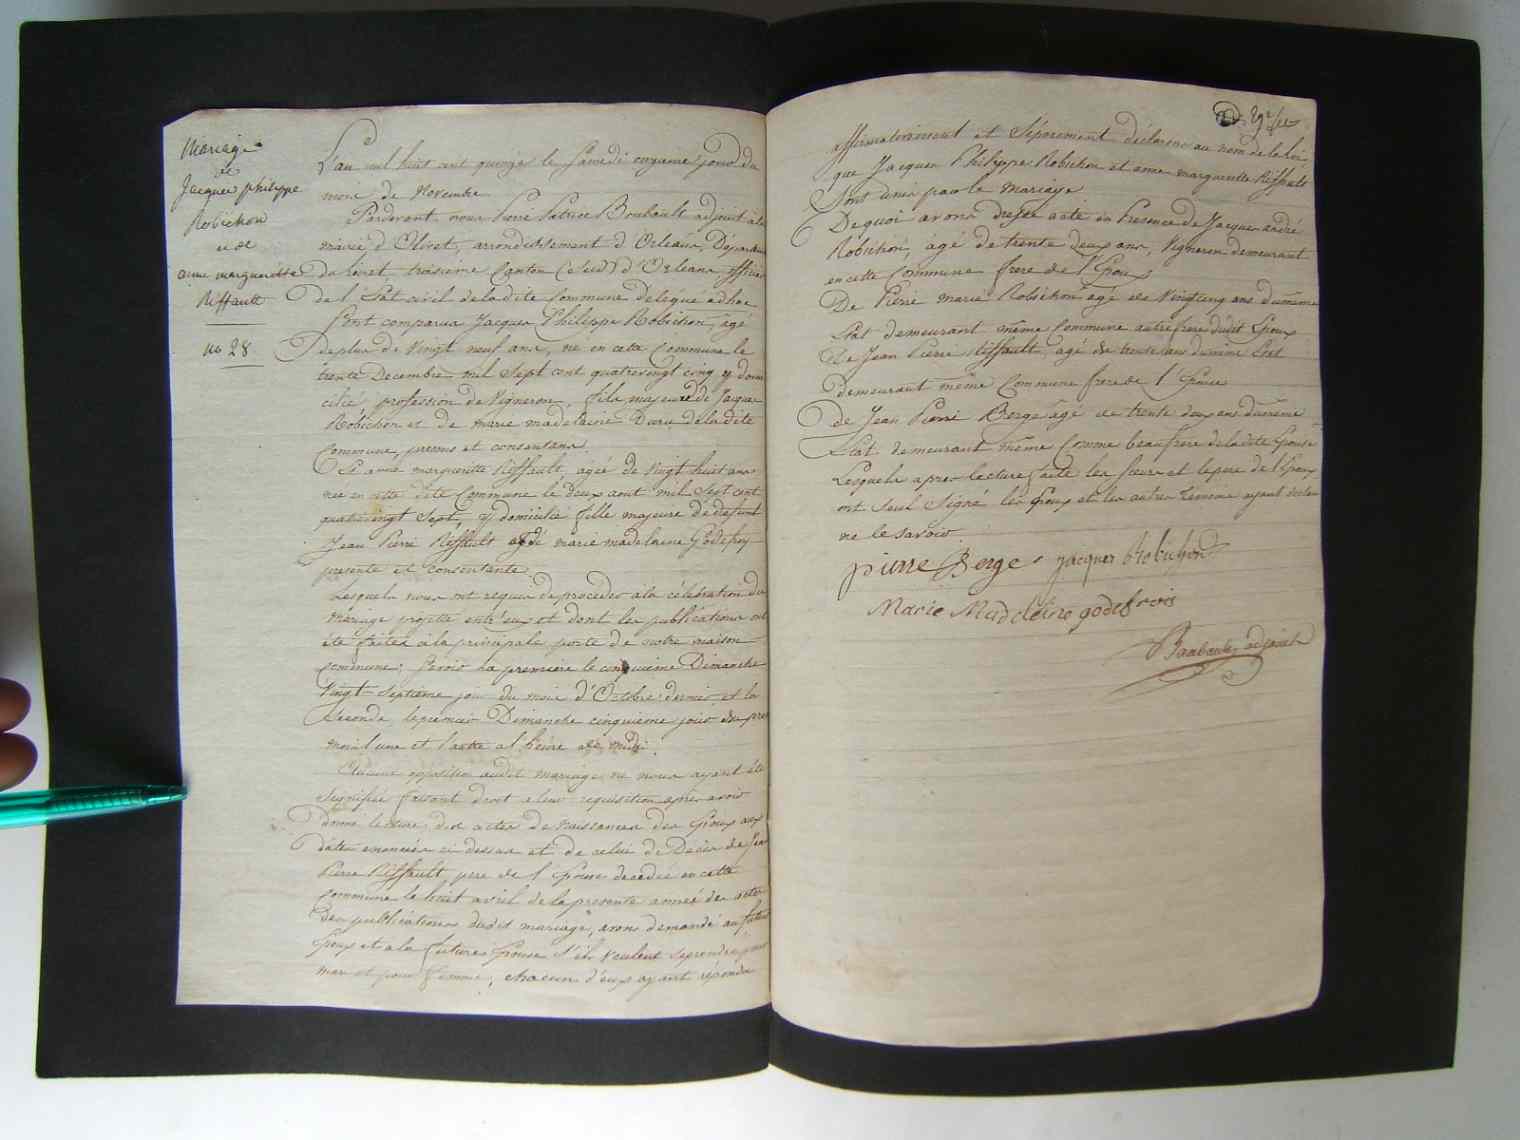 Mariage
de
Jacques philippe
Robichon
et de
anne margueritte
Riffault
no 28
L'an mil huit cent quinze le Samedi onzieme jour du
mois de Novembre
Pardevant nous Pierre Patrice Boubault adjoint à la
mairie d'Olivet, arrondissement d'Orleans, Départem
du Loiret troisieme Canton (Sud) d'Orleans, officier
de l'Etat civil de ladite Commune delegué adhoc
Sont comparus Jacques Philippe Robichon, agé
de plus de Vingt neuf ans, né en cette Commune le
trente Decembre mil Sept cent quatrevingt cinq y domi
cilié profession de Vigneron, fils majeur de Jacques
Robichon et de marie madelaine Daru de la dite
Commune, presens et consentans
Et anne margueritte Riffault, agée de Vingt huit ans
née en cette dite Commune le deux aout mil Sept cent
quatrevingt Sept, y domiciliée fille majeure de defunt
Jean Pierre Riffault et de marie madelaine Godefroy
presente et consentante
Lesquels nous ont requis de proceder à la célébration du
mariage projetté entr'eux et dont les publications ont
été faites à la principale porte de notre maison
commune; Savoir la premiere le cinquieme Dimanche
Vingt Septieme jour du mois d'Octobre dernier et la
Seconde le premier Dimanche cinquieme jour du pres
mois l'une et l'autre a l'heure de midi.
Aucune opposition audit mariage ne nous ayant été
Signifiée faisant droit a leur requisition apres avoir
donné lecture des actes de naissances des Epoux aux
dates enoncées ci dessus et de celui de Décès de Jean
Pierre Riffault pere de l'Epouse decedée en cette
Commune le huit avril de la presente année des actes
des publications dudit mariage, avons demandé au futur
Epoux et a la future Epouse s'ils veulent se prendre pour
mari et pour femme; chacun d'eux ayant répondu
affirmativement et Séparement déclarons au nom de la loi,
que Jacques Philippe Robichon et anne margueritte Riffault
Sont unis par le Mariage
De quoi avons dressé acte en Presence de Jacques andré
Robichon, agé de trente deux ans, Vigneron demeurant
en cette Commune frere de l'Epoux
De Pierre marie Robichon agé de Vingt cinq ans du même
Etat demeurant même Commune autre frere dudit Epoux
De Jean Pierre Riffault, agé de trente ans du même Etat
demeurant même Commune frere de l'Epouse
de Jean Pierre Berge agé de trente deux ans du même
Etat demeurant même Comme beaufrere de ladite Epouse
Lesquels apres lecture faite les Sœurs et le pere de l'Epoux
ont Seul Signé les Epoux et les autres témoins ayant declaré
ne le savoir.
pierre Berge Jacques Robichon
Marie Madeleine godefrois
Boubault adjoint